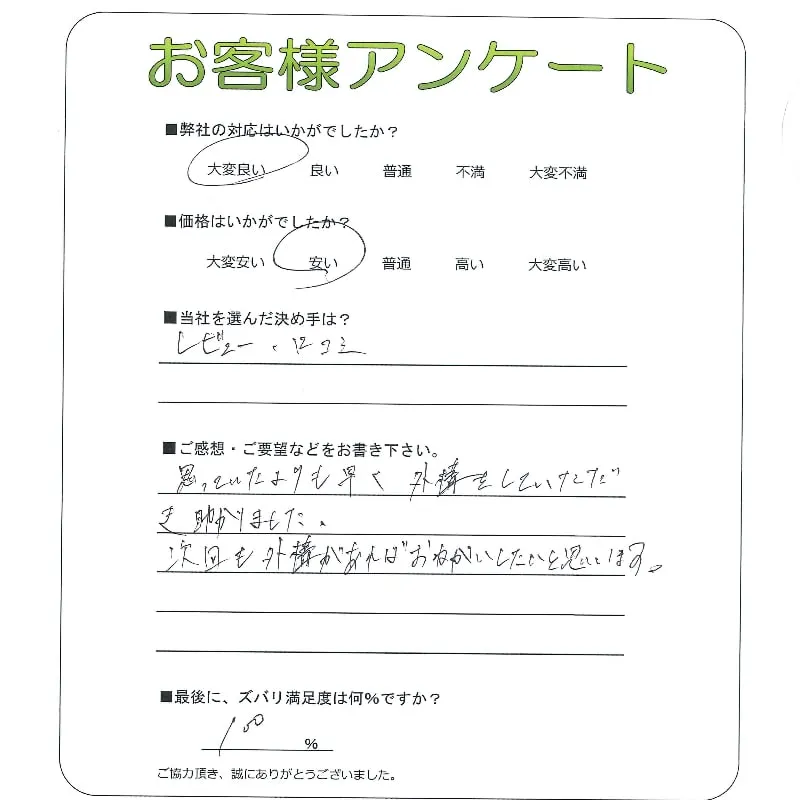 お客様アンケート
■弊社の対応はいかがでしたか？
大変良い 良い 普通 不満 大変不満
■価格はいかがでしたか？
大変安い 安い 普通 高い 大変高い
■当社を選んだ決め手は？
レビュー・口コミ
■ご感想・ご要望などをお書き下さい。
思っていたよりも早く外構をしていただ
き助かりました。
次回も外構があればおねがいしたいと思います。
■最後に、ズバリ満足度は何%ですか？
100 %
ご協力頂き、誠にありがとうございました。